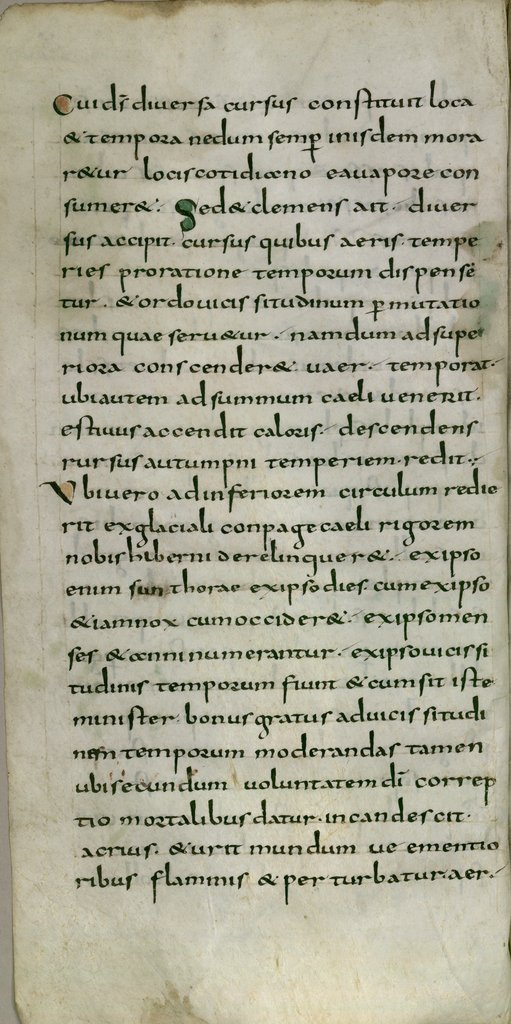 Cui dī diversa cursus constituit loca
& tempora ne dum semp̱ in isdem mora
r&ur locis cotidiano eauapore con
sumer&. Sed & clemens ait. diver
sus accipit. cursus quibus aeris. tempe
ries pro ratione temporum dispensē
tur. & ordo vicissitudinum p̱mutatio
num quae seru&ur. nam dum ad supe
riora conscender& uaer. temporat.
ubi autem ad summum caeli uenerit.
estivus accendit caloris. descendens
rursus autumpni temperiem redit.
Ubi vero ad inferiorem circulum redie
rit ex glaciali conpage caeli rigorem
nobis hiberni derelinquer&. ex ipso
enim sun thorae ex ipso dies cum ex ipso
& iam nox cum occider&. ex ipso men
ses & anni numerantur. ex ipso vicissi
tudinis temporum fiunt & cum sit iste
minister bonus gratus ad vicissitudi
nem temporum moderandas tamen
ubi secundum voluntatem dī correp
tio mortalibus datur. incandescit.
acrius. & urit mundum ueementio
ribus flaminis & perturbatur aer.